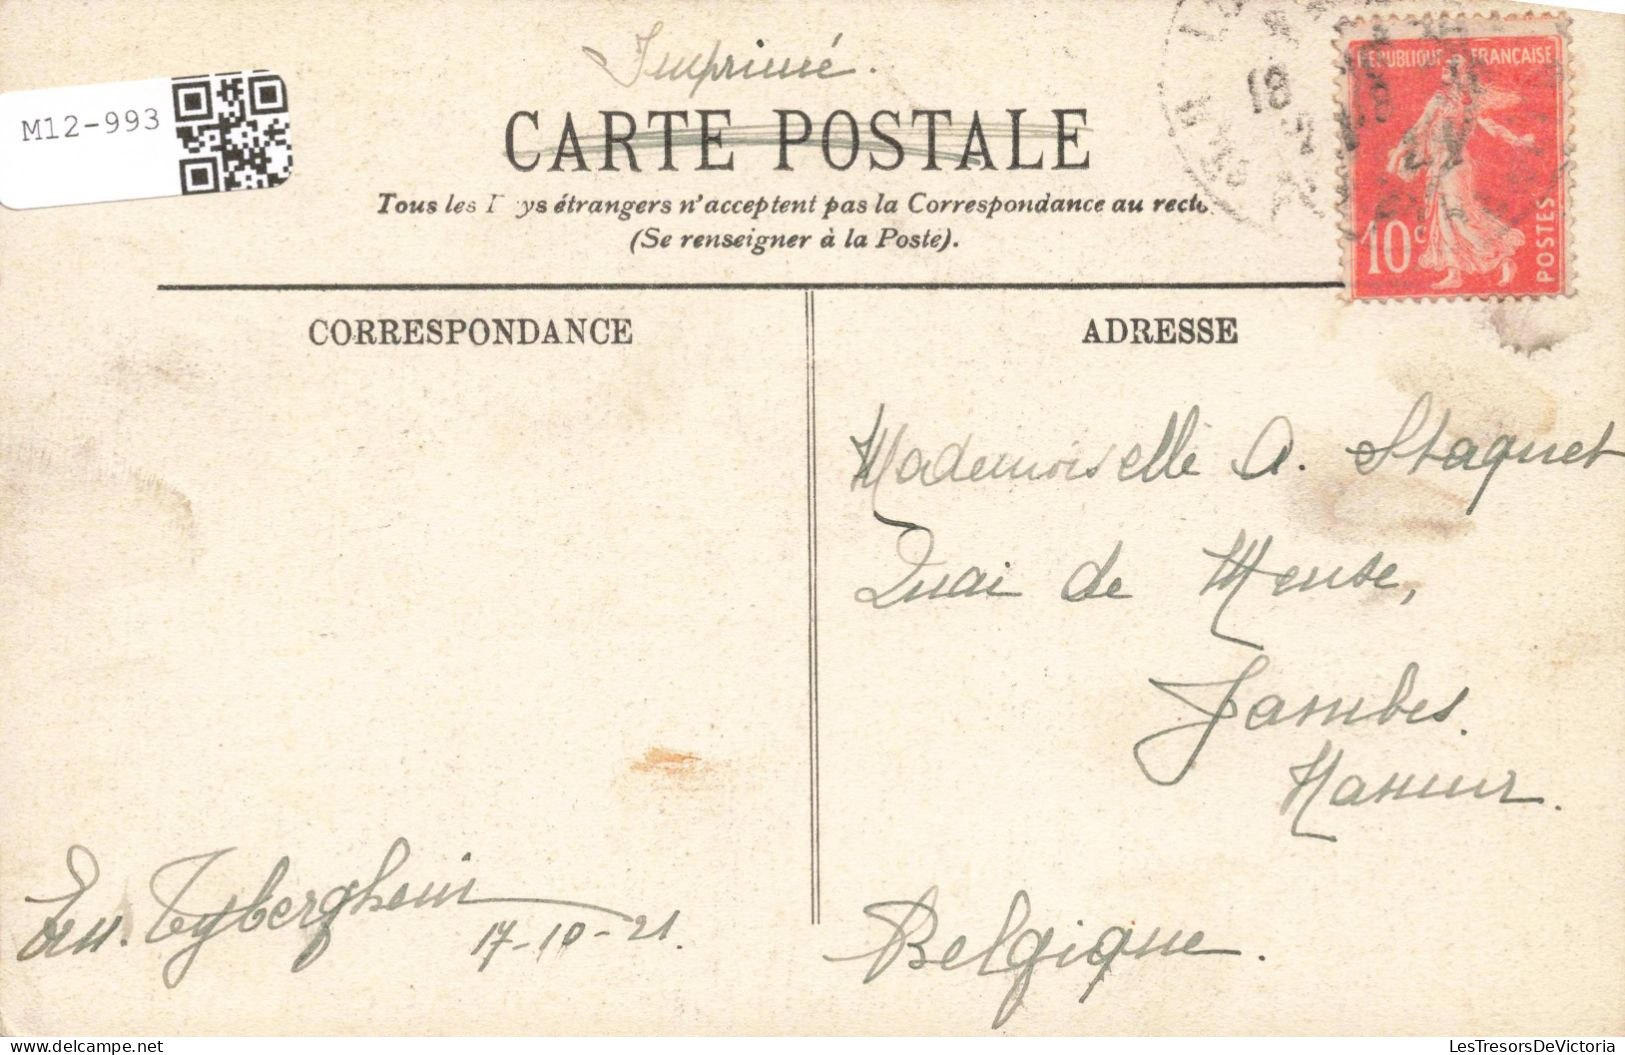 Imprimé.
M12-993
CARTE POSTALE
Tous les Pays étrangers n'acceptent pas la Correspondance au recto
(Se renseigner à la Poste).
REPUBLIQUE FRANÇAISE
10c
POSTES
18
CORRESPONDANCE
ADRESSE
Mademoiselle A. Staquet
Quai de Meuse,
Jambes.
Namur.
Belgique.
Tyberghein
17-10-21.
LesTresorsDeVictoria